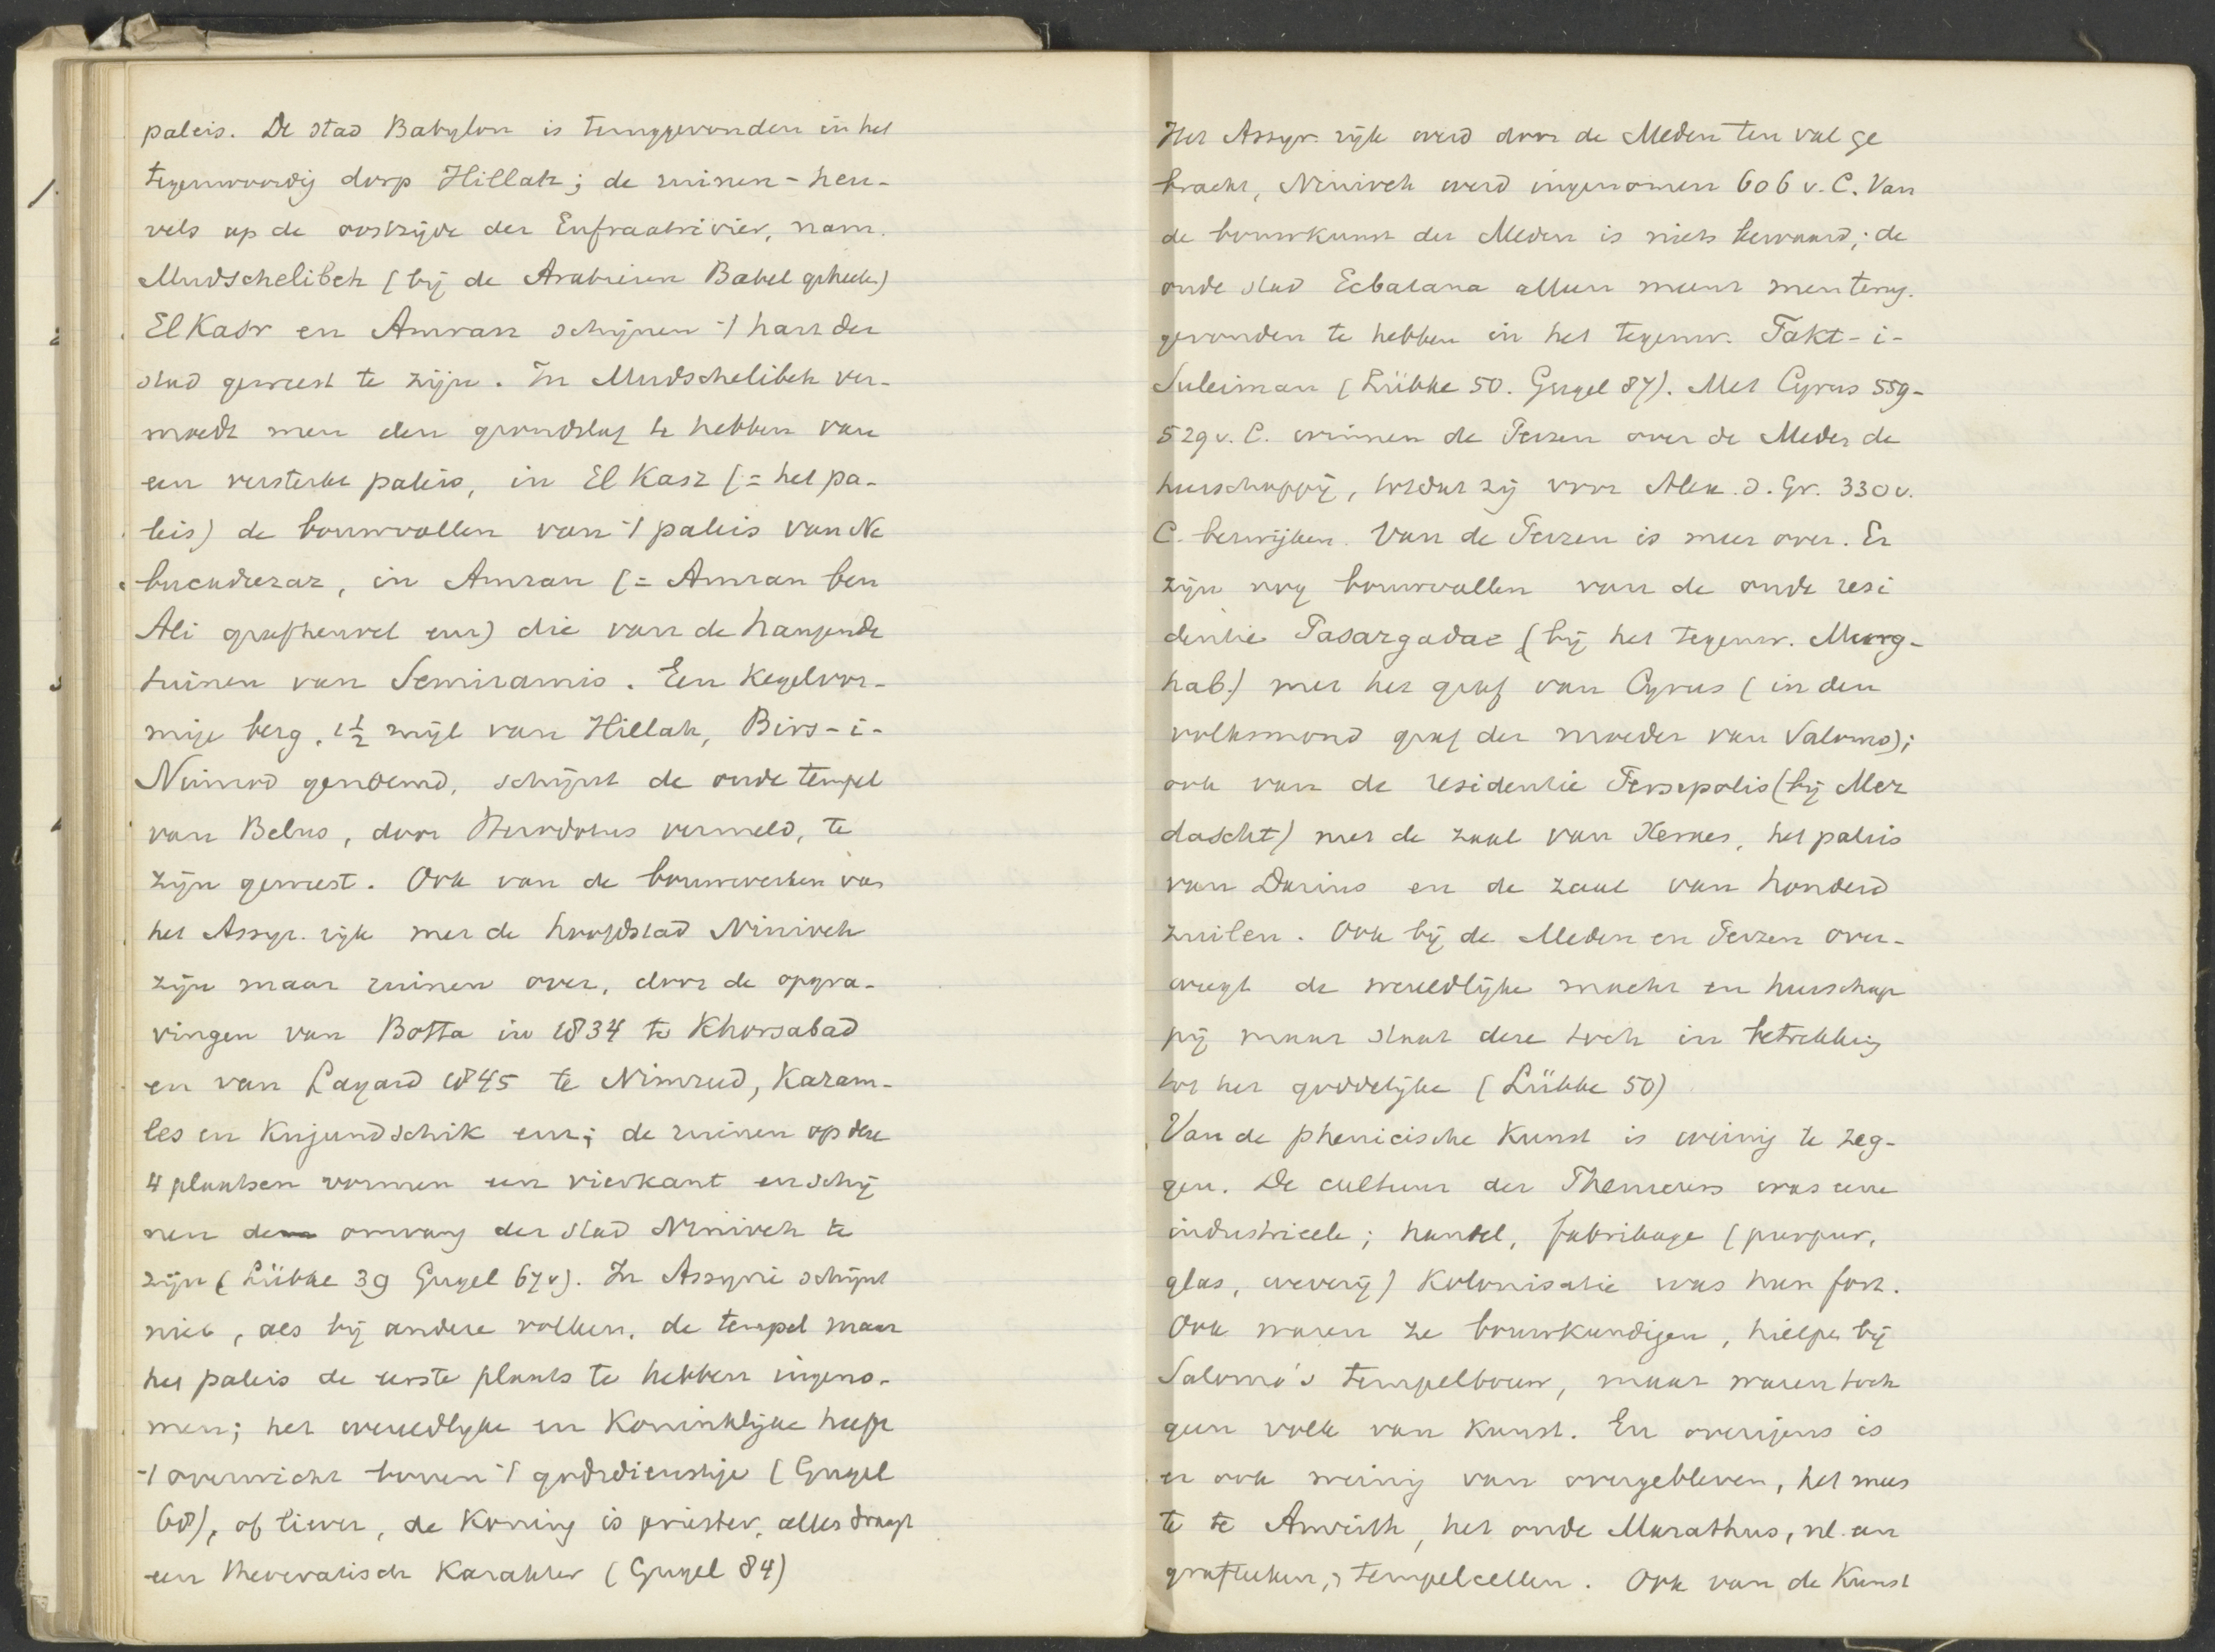 paleis. De stad Babylon is teruggevonden in het
tegenwoordig dorp Hillah; de ruinen-heu-
vels op de oostzijde der Eufraatrivier, nam.
Mudschelibeh (bij de Arabieren Babel geheet.)
El Kasr en Amran schijnen 't hart der
stad geweest te zijn. In Mudschelibeh ver-
moedt men den grondslag te hebben van
een versterkt paleis, in El Kasz (= het pa-
leis) de bouwvallen van 't paleis van Ne
bucadrezar, in Amran (= Amran ben
Ali grafheuvel enz) die van de hangende
tuinen van Semiramis. Een kegelvor-
mige berg, 1½ mijl van Hillah, Birs-i-
Nimrod genoemd, schijnt de oude tempel
van Belus, door Herodotus vermeld, te
zijn geweest. Ook van de bouwwerken van
het Assyr. rijk met de hoofdstad Niniveh
zijn maar ruinen over, door de opgra-
vingen van Botta in 1834 te Khorsabad
en van Layard 1845 te Nimrud, Karam-
les en Kujundschik enz; de ruinen op deze
4 plaatsen vormen een vierkant en schij
nen den omvang der stad Niniveh te
zijn (Lübke 39 Gugel 67v). In Assyrië schijnt
niet, als bij andere volken, de tempel maar
het paleis de eerste plaats te hebben ingeno-
men; het wereldlijke en Koninklijke heeft
't overwicht boven 't godsdienstige (Gugel
68), of liever, de Koning is priester, alles draagt
een theocratisch karakter (Gugel 84)
Het Assyr. rijk werd door de Meden ten val ge
bracht, Niniveh werd ingenomen 606 v. C. Van
de bouwkunst der Meden is niets bewaard; de
oude stad Ecbatana alleen meent men terug.
gevonden te hebben in het tegenw. Takt-i-
Suleiman (Lübke 50. Gugel 87). Met Cyrus 559-
529 v. C. winnen de Perzen over de Meder de
heerschappij, totdat zij voor Alex. d. Gr. 330 v.
C. bezwijken. Van de Perzen is meer over. Er
zijn nog bouwvallen van de oude resi
dentie Pasargadae (bij het tegenw. Murg-
hab.) met het graf van Cyrus (in den
volksmond graf der moeder van Salomo);
ook van de residentie Persepolis (bij Mer
dascht) met de zaal van Xerxes, het paleis
van Darius en de zaal van honderd
zuilen. Ook bij de Meden en Perzen over-
weegt de wereldlijke macht en heerschap
pij maar staat deze toch in betrekking
tot het goddelijke (Lübke 50)
Van de phenicische Kunst is weinig te zeg-
gen. De cultuur der Pheniciers was eene
industrieele; handel, fabrikage (purpur,
glas, weverij) Kolonisatie was hun fort.
Ook waren ze bouwkundigen, hielpen bij
Salomo's tempelbouw, maar waren toch
geen volk van Kunst. En overigens is
er ook weinig van overgebleven, het mees
te te Amrith, het oude Marathus, nl. aan
grafteeken, tempelcellen. Ook van de Kunst